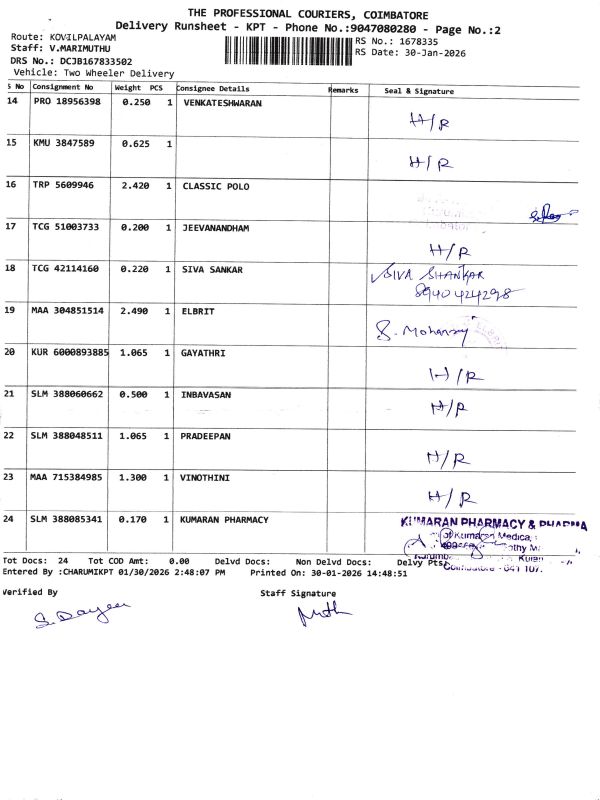 THE PROFESSIONAL COURIERS, COIMBATORE
Delivery Runsheet - KPT - Phone No.:9047080280 - Page No.:2
Route: KOVILPALAYAM
Staff: V.MARIMUTHU
DRS No.: DCJB167833502
Vehicle: Two Wheeler Delivery
RS No.: 1678335
RS Date: 30-Jan-2026
S No Consignment No Weight PCS Consignee Details Remarks Seal & Signature
14 PRO 18956398 0.250 1 VENKATESHWARAN H/R
15 KMU 3847589 0.625 1 H/R
16 TRP 5609946 2.420 1 CLASSIC POLO
17 TCG 51003733 0.200 1 JEEVANANDHAM H/R
18 TCG 42114160 0.220 1 SIVA SANKAR SIVA SHANKAR
8940424298
19 MAA 304851514 2.490 1 ELBRIT S. Mohanraj ELBRIT
20 KUR 6000893885 1.065 1 GAYATHRI H/R
21 SLM 388060662 0.500 1 INBAVASAN H/R
22 SLM 388048511 1.065 1 PRADEEPAN H/R
23 MAA 715384985 1.300 1 VINOTHINI H/R
24 SLM 388085341 0.170 1 KUMARAN PHARMACY KUMARAN PHARMACY & PHARMA
of Kumaran Medical
Coimbatore - 641 107.
Tot Docs: 24 Tot COD Amt: 0.00 Delvd Docs: Non Delvd Docs: Delvy Pts:
Entered By :CHARUMIKPT 01/30/2026 2:48:07 PM Printed On: 30-01-2026 14:48:51
Verified By Staff Signature